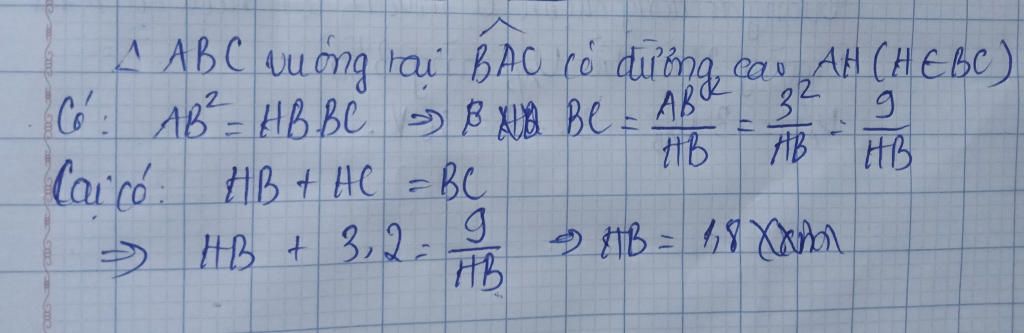 △ ABC vuông tại BAC có đường cao AH (H∈BC)
Có: AB² = HB BC ⇒ BC = AB²/HB = 3²/HB = 9/HB
Lại có: HB + HC = BC
⇒ HB + 3,2 = 9/HB ⇒ HB = 1,8